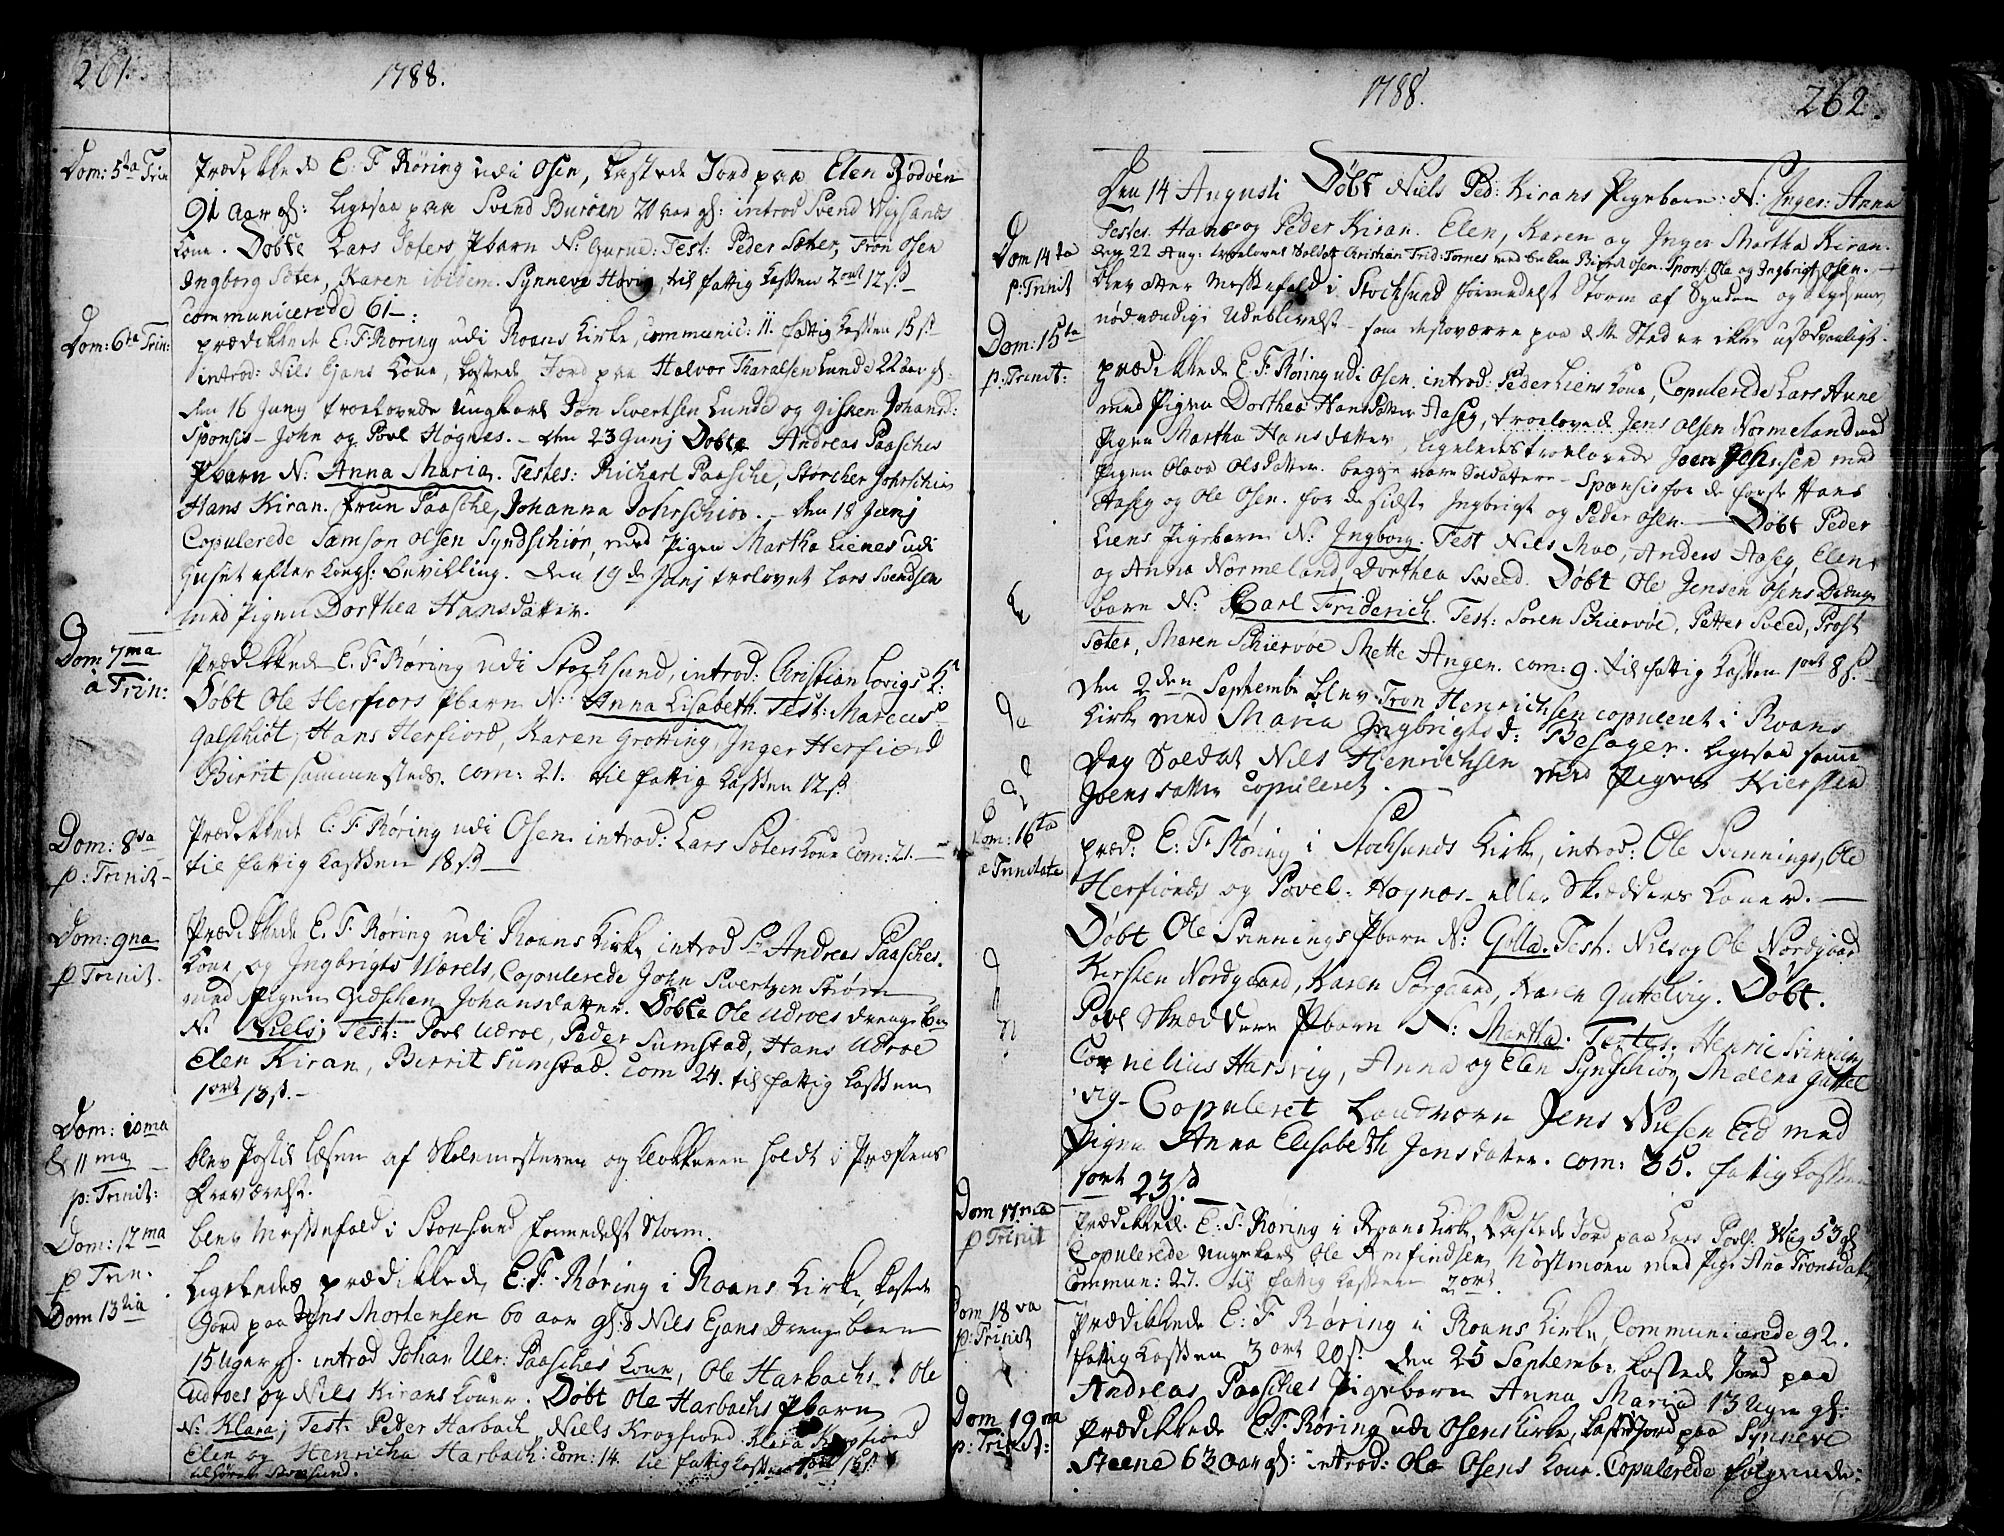 261.
1788.
Dom: 5ta Trin
Prædikkede E: F Røring udi Osen, kastede Jord paa Elen Rødvën
91 Aar gl: ligesaa paa Svend Burøen 20 aar gl: introd Svend Vigsands
kone. Døbte Lars Sæters Pbarn N: Gurue: Test: Peder Sæter, Tron Osen
Ingborg Sæter, Karen ibidem. Synneve Høvig, til fattig Kassen 2ort 12 ß
communicerede 61-:
Dom: 6ta Trin:
prædikkede E: F: Røring udi Roans Kirke, communic: 11. fattig Kassen 15 ß
introd: Nils Ejans Kone, kastede Jord paa Halvor Tharalsen Lunde 22 aar gl.
den 16 Junij troelovede Ungkarl Jon Sivertsen Lunde og Gisken Johansd:
Sponsis - John og Povl Høgnes. - den 23 Junij Døbte Andreas Paasches
Pbarn N: Anna Maria. Testes: Richart Paasche, Storcher Johrschiøn
Hans Kiran. frun Paasche, Johanna Johrschiøn. - den 18 Junij
Copulerede Samson Olsen Syndschiør, med Pigen Martha Lienes udi
Huset efter kongl: bevilling. den 19de Junij trolovet Lars Svendsen
med Pigen Dorthea Hansdatter.
Dom 7ma
a Trin:
Prædikkede E. F. Røring udi Stochsund, introd: Christian Lovigs K:
Døbt Ole Herfiors Pbarn N: Anna Lisabeth. Test: Marcus
Galschiøt, Hans Herfiord, Karen Grøtting, Inger Herfiord
Birrit sammesteds. com: 21. til fattig Kassen 12 ß
Dom: 8va
p: Trinit-
Prædikkede E: F Røring udi Osen. introd: Lars Sæters Kone Com: 21.-
til fattig Kassen 18 ß
Dom: 9na
p Trinit.
Prædikkede E. F. Røring udi Roans Kirke introd Sr Andreas Paasches.
Kone og Ingbrigts Værels, Copulerede John Sivertzen Strøm
med Pigen Gidschen Johansdatter. Døbte Ole Udroes drengebarn
N: Niels; Test: Povl Udroe, Peder Sumstad, Hans Udroe
Elen Kiran, Birrit Sumstad. Com 24. til fattig Kassen
1ort 13 ß.-
Dom: 10ma
& 11ma
p: Trinit:
blev Postil læsen af Skolemesteren og klokkeren holdt i Præstens
fraværelse.
Dom: 12ma
p Trin.
blev Messefald i Stocsund formedelst Storm.
Dom 13tia
Ligeledes prædikkede E: F. Røring i Roans Kirke, kastede
Jord paa Jens Mortensen 60 aar gl: & Niels Ejans Drengebarn
15 Uger gl. introd Johan Ulr: Paasches Kone, Ole Harbachs, Ole
Udroes og Niels Kirans Koner. Døbt Ole Harbachs Pbarn
N: Klara; Test: Peder Harbach, Niels Krogfiord. Klara Krogfiord
Elen og Henricha Harbach: Com: 14. til fattig Kassen 1ort 16 ß
tilhører Stocsund.
1788.
262.
Den 14 Augusti Døbt Niels Ped: Kirans Pigebarn. N: Inger: Anna
Testes. Hans og Peder Kiran. Elen, Karen og Inger Martha Kiran.
Den 22 Aug: troelovet Soldat Christian Frid: Tornes med Enken Birrit Osen. Spons: Ole og Ingbrigt Osen.
Dom 14ta
p: Trinit
blev atter Messefald i Stochsund formedelst Storm af Synden og
nødvændige Udeblivelse - som desværre paa dette Sted er ikke usædvanligt.
Dom: 15ta
p. Trinit:
Prædikkede E. F. Røring udi Osen. introd: Peder Liens Kone, Copulerede Lars Aune
med Pigen Dorthea Hansdatter Aaseg, troelovede Jens Olsen Normeland med
Pigen Martha Hansdatter, ligeledes troelovede Joen Johnsen med
Pigen Olava Olsdatter. begge vare Soldatere - Sponsis for de første Hans
Aaseg og Ole Osen. for de sidste Ingbrigt og Peder Osen. - Døbt Peder
Liens Pigebarn N: Ingborg. Test Niels Moe, Anders Aaseg, Elen
og Anna Normeland, Dorthea Sweed. Døbt Ole Jensen Osens Drenge
barn N: Carl Friderich. Test: Søren Schiervøe, Petter Sweed, Prost
Sæter, Maren Schiervøe Mette Angen. com: 9. til fattig Kassen 1ort 8 ß.
Den 2den Septembr blev Tron Henrichsen copuleret i Roans
Kirke med Maria Ingbrigtsd: Besager. ligesaa samme
Dag Soldat Niels Henrichsen med Pigen Kiersten
Joensdatter copuleret.
Dom: 16ta
a Trinitate
præd: E: F Røring i Stochsunds Kirke, introd: Ole Svinnings, Ole
Herfiords og Povel. Høgnæs eller Skrædders Koner.
Døbt Ole Svinnings Pbarn N: Golla. Test: Niels og Ole Nordgaard
Kirsten Nordgaard, Karen Sørgaard, Karen Guttelvig. Døbt.
Povl Skræddere Pbarn N: Martha. Testes. Henric Svinning
Cornelius Harsvig, Anna og Elen Synschiør, Malena Guttel
vig- Copuleret Landværn Jens Nielsen Eid med
Pigen Anna Elisabeth Jensdatter. com: 35. fattig Kassen
1ort 23 ß
Dom 17ma
p Trinit
Prædikkede. E: F. Røring i Roans Kirke, Kastede Jord paa Lars Povls: Wiig 53 gl.
Copulerede Ungekarl Ole Amfindsen Nøstmoen med Pige Ane Tronsdatter
Commun: 27. til fattig Kassen 2ort.
Dom 18va
p: Trinit
Prædikkede E: F Røring i Roans Kirke, Communicerede 92.
fattig Kassen 3ort 20 ß. Den 25 Septembr: Kastede Jord paa
Andreas Paasches Pigebarn Anna Maria 13 Ugr gl:
Dom 19na
p: Trinit:
Prædikkede E. F. Røring udi Osens Kirke, Kastede Jord paa Synneve
Steene 63 Aar gl: introd: Ole Osens Kone. Copulerede følgende: